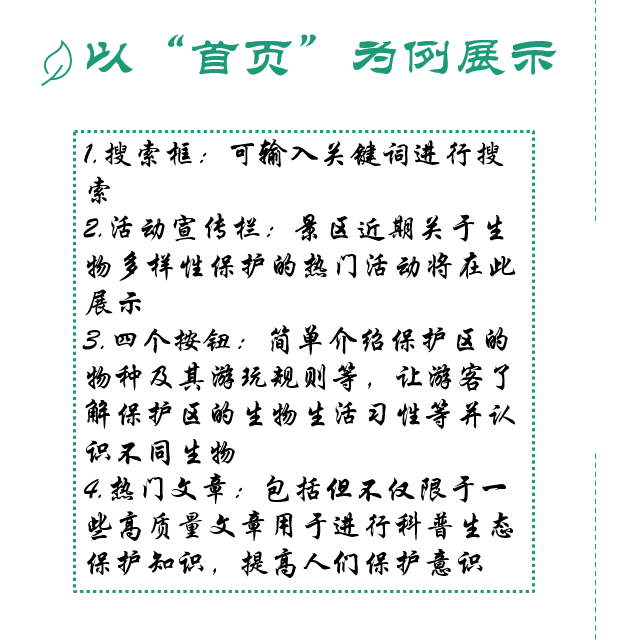 以“首页”为例展示
1.搜索框：可输入关键词进行搜
索
2.活动宣传栏：景区近期关于生
物多样性保护的热门活动将在此
展示
3.四个按钮：简单介绍保护区的
物种及其游玩规则等，让游客了
解保护区的生物生活习性等并认
识不同生物
4.热门文章：包括但不仅限于一
些高质量文章用于进行科普生态
保护知识，提高人们保护意识